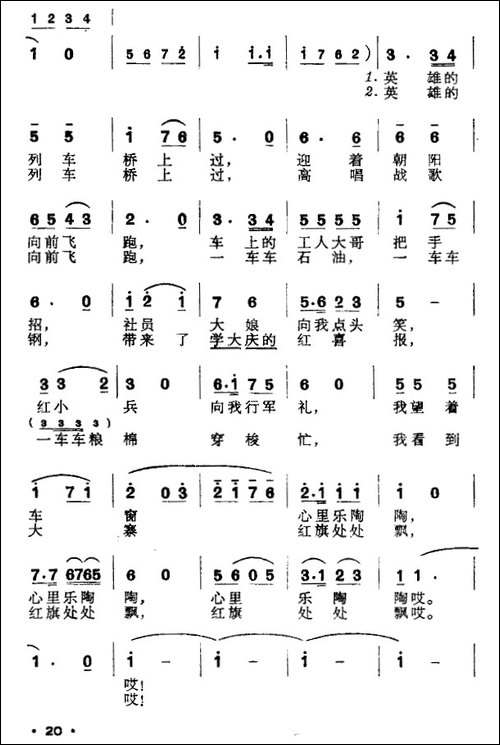 1 2 3 4
1 0 5 6 7 2 1 1. 1 1 7 6 2 ) 3. 3 4
1. 英 雄的
2. 英 雄的
5 5 1 7 6 5. 0 6. 6 6 6
列 车 桥 上 过， 迎 着 朝 阳
列 车 桥 上 过， 高 唱 战 歌
6 5 4 3 2. 0 3. 3 4 5 5 5 5 1 7 5
向前飞 跑， 车 上的 工人大哥 把 手
向前飞 跑， 一 车车 石油，一 车车
6. 0 1 2 1 7 6 5. 6 2 3 5 –
招， 社员 大 娘 向我点头 笑，
钢， 带来 了 学大庆的 红喜 报，
3 3 2 3 0 6. 1 7 5 6 0 5 5
红小 兵 向我行军 礼， 我望 着
( 3 3 3 3 )
一车车粮 棉 穿梭 忙， 我看 到
1 7 1 2 0 3 2 1 7 6 2. 1 1 1 1 0
车 窗 心里乐陶 陶，
大 寨 红旗处处 飘，
7. 7 6 7 6 5 6 0 5 6 0 5 3. 1 2 3 1 1.
心里乐陶 陶， 心里 乐 陶 陶哎。
红旗处处 飘， 红旗 处 处 飘哎。
1. 0 1 – 1 – 1 – 1 –
哎！
哎！
· 20 ·